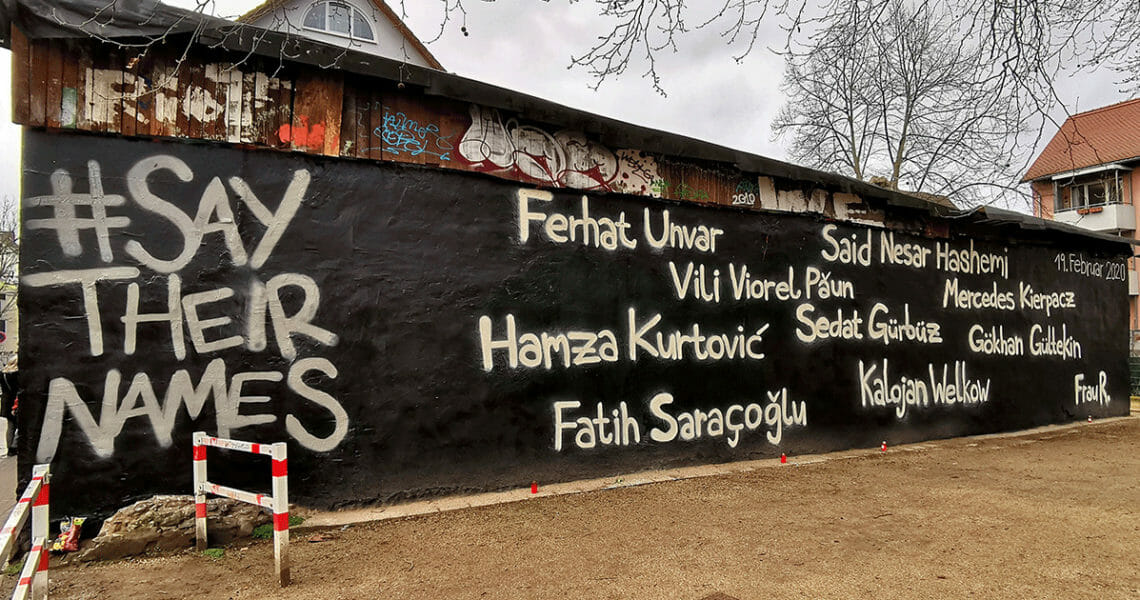 #SAY
THEIR
NAMES
Ferhat Unvar
Said Nesar Hashemi
19. Februar 2020
Vili Viorel Păun
Mercedes Kierpacz
Hamza Kurtović
Sedat Gürbüz
Gökhan Gültekin
Fatih Saraçoğlu
Kalojan Welkow
Frau R.
2010